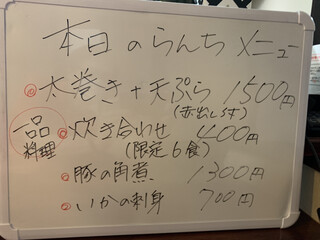 本日のらんちメニュー
太巻き+天ぷら 1500円
(赤出し付)
一品料理
炊き合わせ 400円
(限定6食)
豚の角煮 1300円
いかの刺身 700円